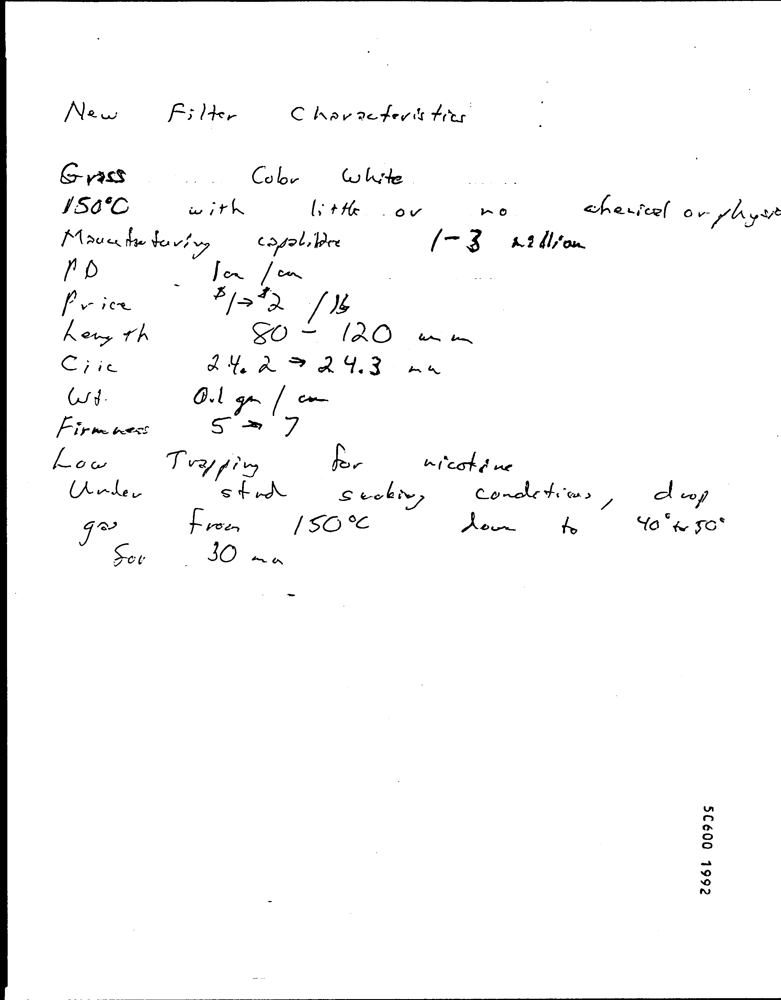 New Filter Characteristics
Grass Color White
150°C with little or no chemical or physic
Manufacturing capabilities 1-3 million
PD 1cm / cm
Price $1→$2 / lb
Length 80 - 120 mm
Circ 24.2 → 24.3 mm
Wt. 0.1 gm / cm
Firmness 5 → 7
Low Trapping for nicotine
Under stnd smoking conditions, drop
gas from 150°C down to 40° to 50°
for 30 mm
50600 1992